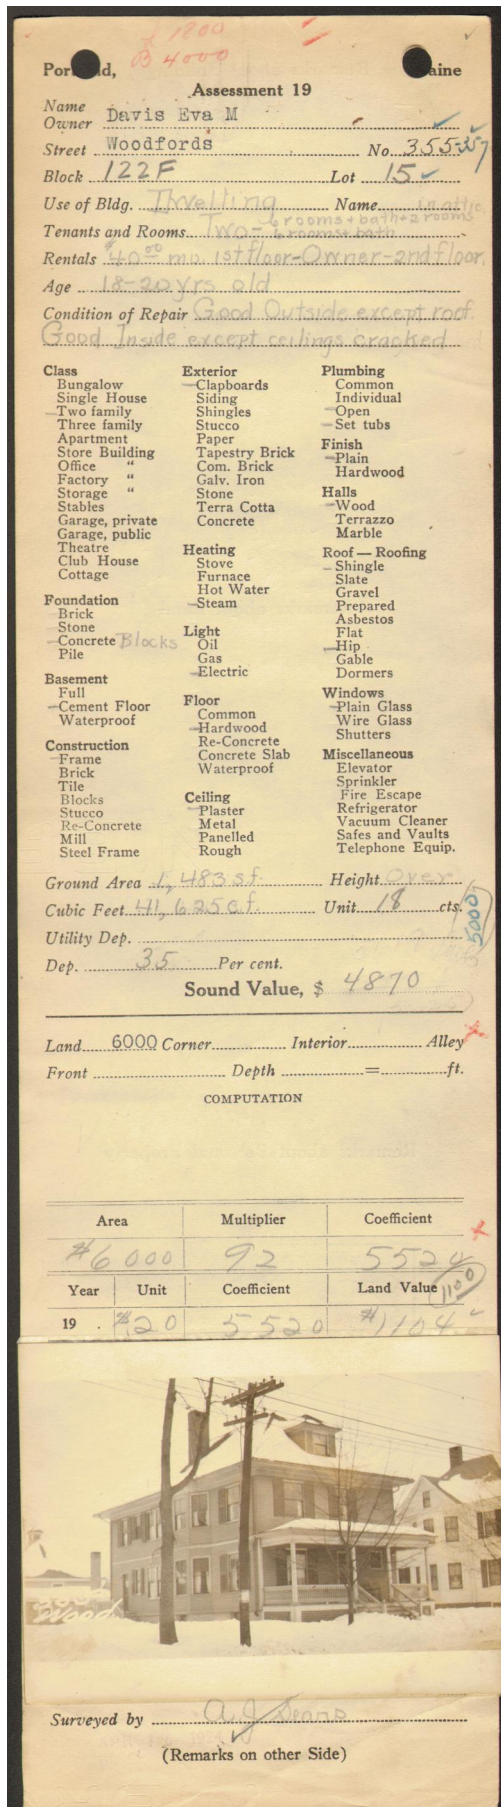 L 1200
B 4000
Portland, Maine
Assessment 19
Name
Owner Davis Eva M
Street Woodfords No. 355-357
Block 122F Lot 15
Use of Bldg. Dwelling Name in attic
Tenants and Rooms Two- 6 rooms + bath + 2 rooms
6 rooms + bath
Rentals $40.00 mo. 1st floor-Owner-2nd floor.
Age 18-20 yrs old
Condition of Repair Good Outside except roof.
Good Inside except ceilings cracked
Class
Bungalow
Single House
Two family
Three family
Apartment
Store Building
Office "
Factory "
Storage "
Stables
Garage, private
Garage, public
Theatre
Club House
Cottage
Foundation
Brick
Stone
Concrete Blocks
Pile
Basement
Full
Cement Floor
Waterproof
Construction
Frame
Brick
Tile
Blocks
Stucco
Re-Concrete
Mill
Steel Frame
Exterior
Clapboards
Siding
Shingles
Stucco
Paper
Tapestry Brick
Com. Brick
Galv. Iron
Stone
Terra Cotta
Concrete
Heating
Stove
Furnace
Hot Water
Steam
Light
Oil
Gas
Electric
Floor
Common
Hardwood
Re-Concrete
Concrete Slab
Waterproof
Ceiling
Plaster
Metal
Panelled
Rough
Plumbing
Common
Individual
Open
Set tubs
Finish
Plain
Hardwood
Halls
Wood
Terrazzo
Marble
Roof — Roofing
Shingle
Slate
Gravel
Prepared
Asbestos
Flat
Hip
Gable
Dormers
Windows
Plain Glass
Wire Glass
Shutters
Miscellaneous
Elevator
Sprinkler
Fire Escape
Refrigerator
Vacuum Cleaner
Safes and Vaults
Telephone Equip.
Ground Area 1,483 sf. Height Over
Cubic Feet 41,625 c.f. Unit 18 cts.
5000
Utility Dep.
Dep. 35 Per cent.
Sound Value, $ 4870
Land 6000 Corner Interior Alley
Front Depth = ft.
COMPUTATION
Area Multiplier Coefficient
#6000 92 5520
Year Unit Coefficient Land Value 1100
19 . $20 5520 $1104.
Surveyed by A J Sears
(Remarks on other Side)